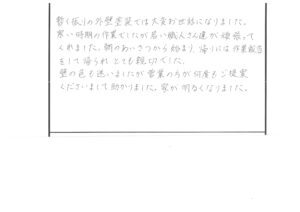 暫く振りの外壁塗装では大変お世話になりました。
寒い時期の作業でしたが若い職人さん達が頑張って
くれました。朝のあいさつから始まり、帰りには作業報告
をして帰られ とても親切でした。
壁の色も迷いましたが営業の方が何度もご提案
くださいまして助かりました。家が明るくなりました。